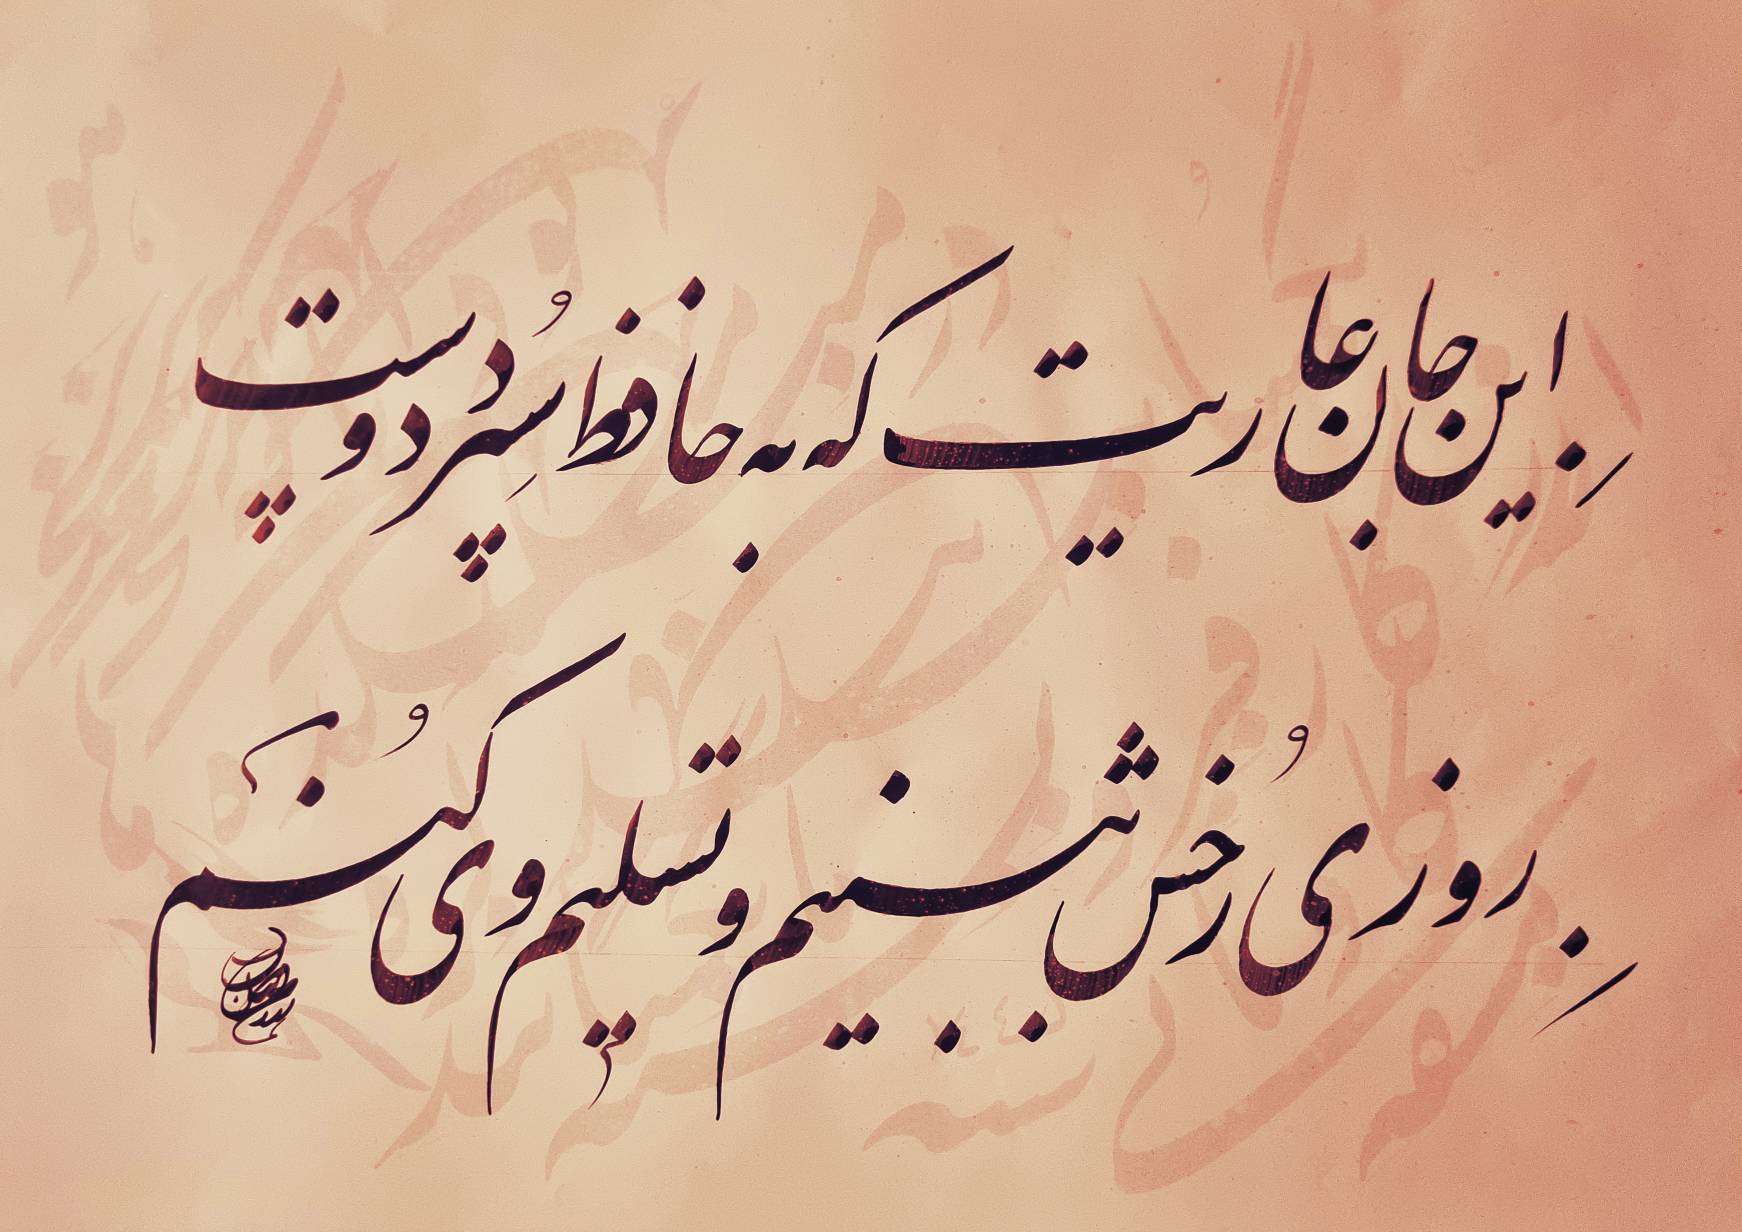 این جان عاریت که به حافظ سپرد دوست
روزی رخش ببینم و تسلیم وی کنم